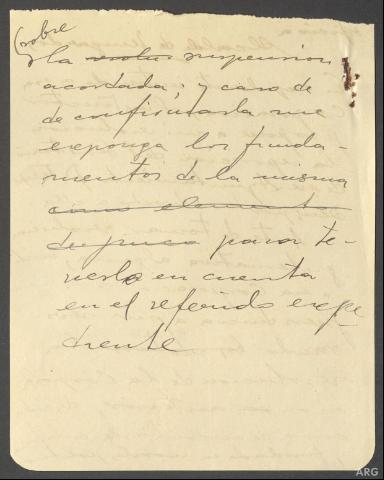 (sobre
la suspension
acordada; y caso de
de confirmarla me
exponga los funda-
mentos de la misma
como elemento
de juicio para te-
nerlo en cuenta
en el referido expe-
diente
ARG